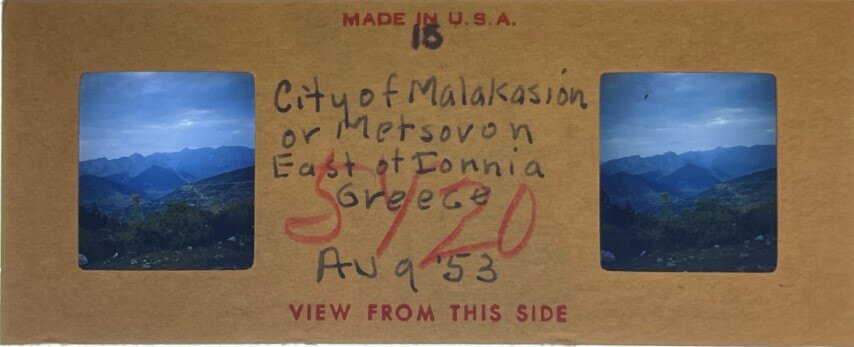 MADE IN U.S.A.
15
City of Malakasion
or Metsovon
East of Ionnia
Greece
5Y20
Aug '53
VIEW FROM THIS SIDE